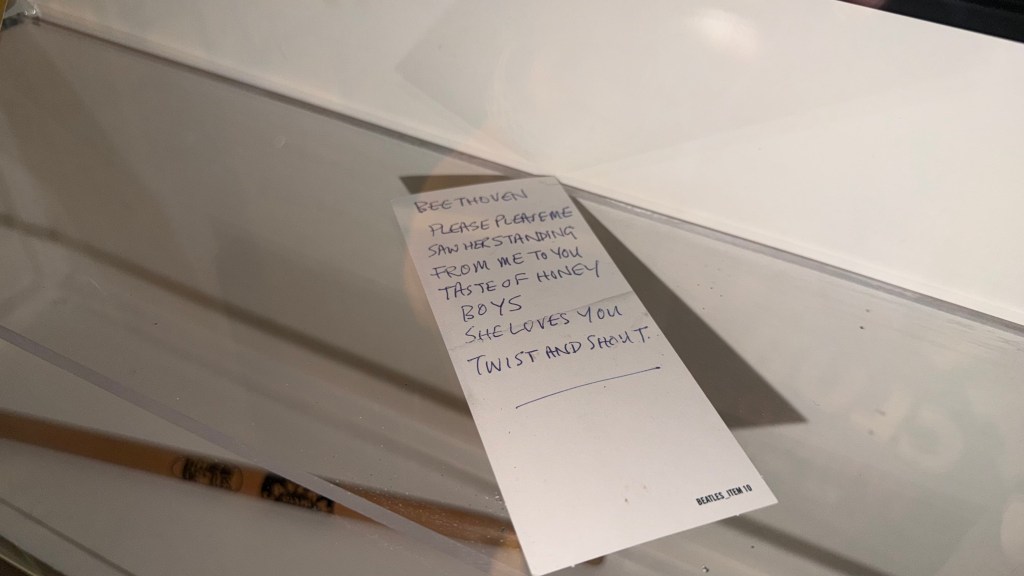 BEETHOVEN
PLEASE PLEASE ME
SAW HER STANDING
FROM ME TO YOU
TASTE OF HONEY
BOYS
SHE LOVES YOU
TWIST AND SHOUT.
BEATLES_ITEM 10